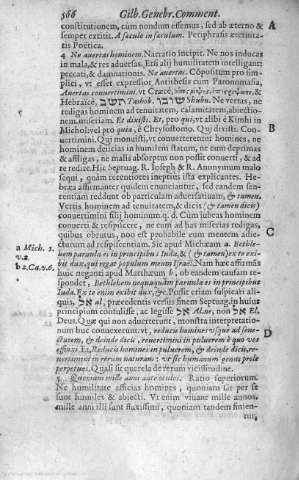 566 Gilb. Genebr. Comment.
constitutionem, cùm nondum essemus, sed ab æterno &
semper extitit. A sæculo in sæculum. Periphrasis æternita-
tis Poëtica.
4 Ne auertas hominem. Narratio incipit. Ne nos inducas
in mala, & res aduersas, Etsi alij humilitatem intelligant
peccati, & damnationis. Ne auertas. Cõpositum pro sim-
plici, vt esset expressior Antithesis cum Paronomasia,
Auertas conuertimini. vt Græcè,
Hebraicè, תשב Taschob. שובו Shuÿu. Ne vertas, ne
redigas hominem ad tenuitatem, calamitatem, abiectio-
nem, miseriam. Et dixisti. Et, pro qui, vt alibi è Kimhi in
Micholivel pro quia, è Chrysostomo. Qui dixisti. Con-
uertimini. Qui monuisti, vt conuerterentur homines, ne
hominem deiicias in humilem statum, ne eum deprimas
& affligas, ne malis absorptus non possit conuerti, & ad
te redire. Hic Septuag. R. Ioseph & R. Anonymum malo
sequi, quàm recentiores ineptius ista explicantes. He-
bræa affirmanter quidem enunciantur, sed eandem sen-
tentiam reddunt ob particulam aduersatiuam, & tamen.
Vertis hominem ad tenuitatem, & dicis (& tamen dicis)
conuertimini filij hominum. q. d. Cùm jubeas hominem
conuerti & respiscere, ne eum ad has miserias redigas,
quibus obrutus, non est probabile eum mentem adie-
cturum ad resipiscentiam. Sic apud Michæam a. Bethle-
hem paruula es in principibus Iuda, & (& tamen) ex te exi-
bit dux, qui regat populum meum Israel. Nam hæc affirmatè
huic neganti apud Matthæum b, ob eandem causam re-
spondet, Bethlehem nequaquam paruula es in principibus
Iuda. Ex te enim exibit dux, &c. Posse etiam suspicari ali-
quis, אל al, præcedentis versus finem Septuag. in huius
principium contulisse, ac legisse אל Al, ne, non אל El,
Deus. Quæ qui non aduerterunt, monstra interpretatio-
num huc connexerunt. vt, reducis homines vsque ad sene-
ctutem, & deinde dicis, reuertimini in puluerem è quo vos
essinxi. Et, Reducis homines in puluerem, & deinde dicis, re-
uertamini in rerum naturam: vt sit hominum generis prole
perpetuet. Quasi sit querela de rerum vicissitudine.
5 Quoniam mille anni ante oculos. Ratio superiorum.
Ne humilitate afficias homines, quoniam se per se
sunt humiles & abiecti. Vt enim viuant mille annos,
mille anni illi sunt fluxissimi, quoniam tandem finien-
tur,
A
B
C
D
a Mich. 5.
v. 2.
b 2. Ca. v. 6.